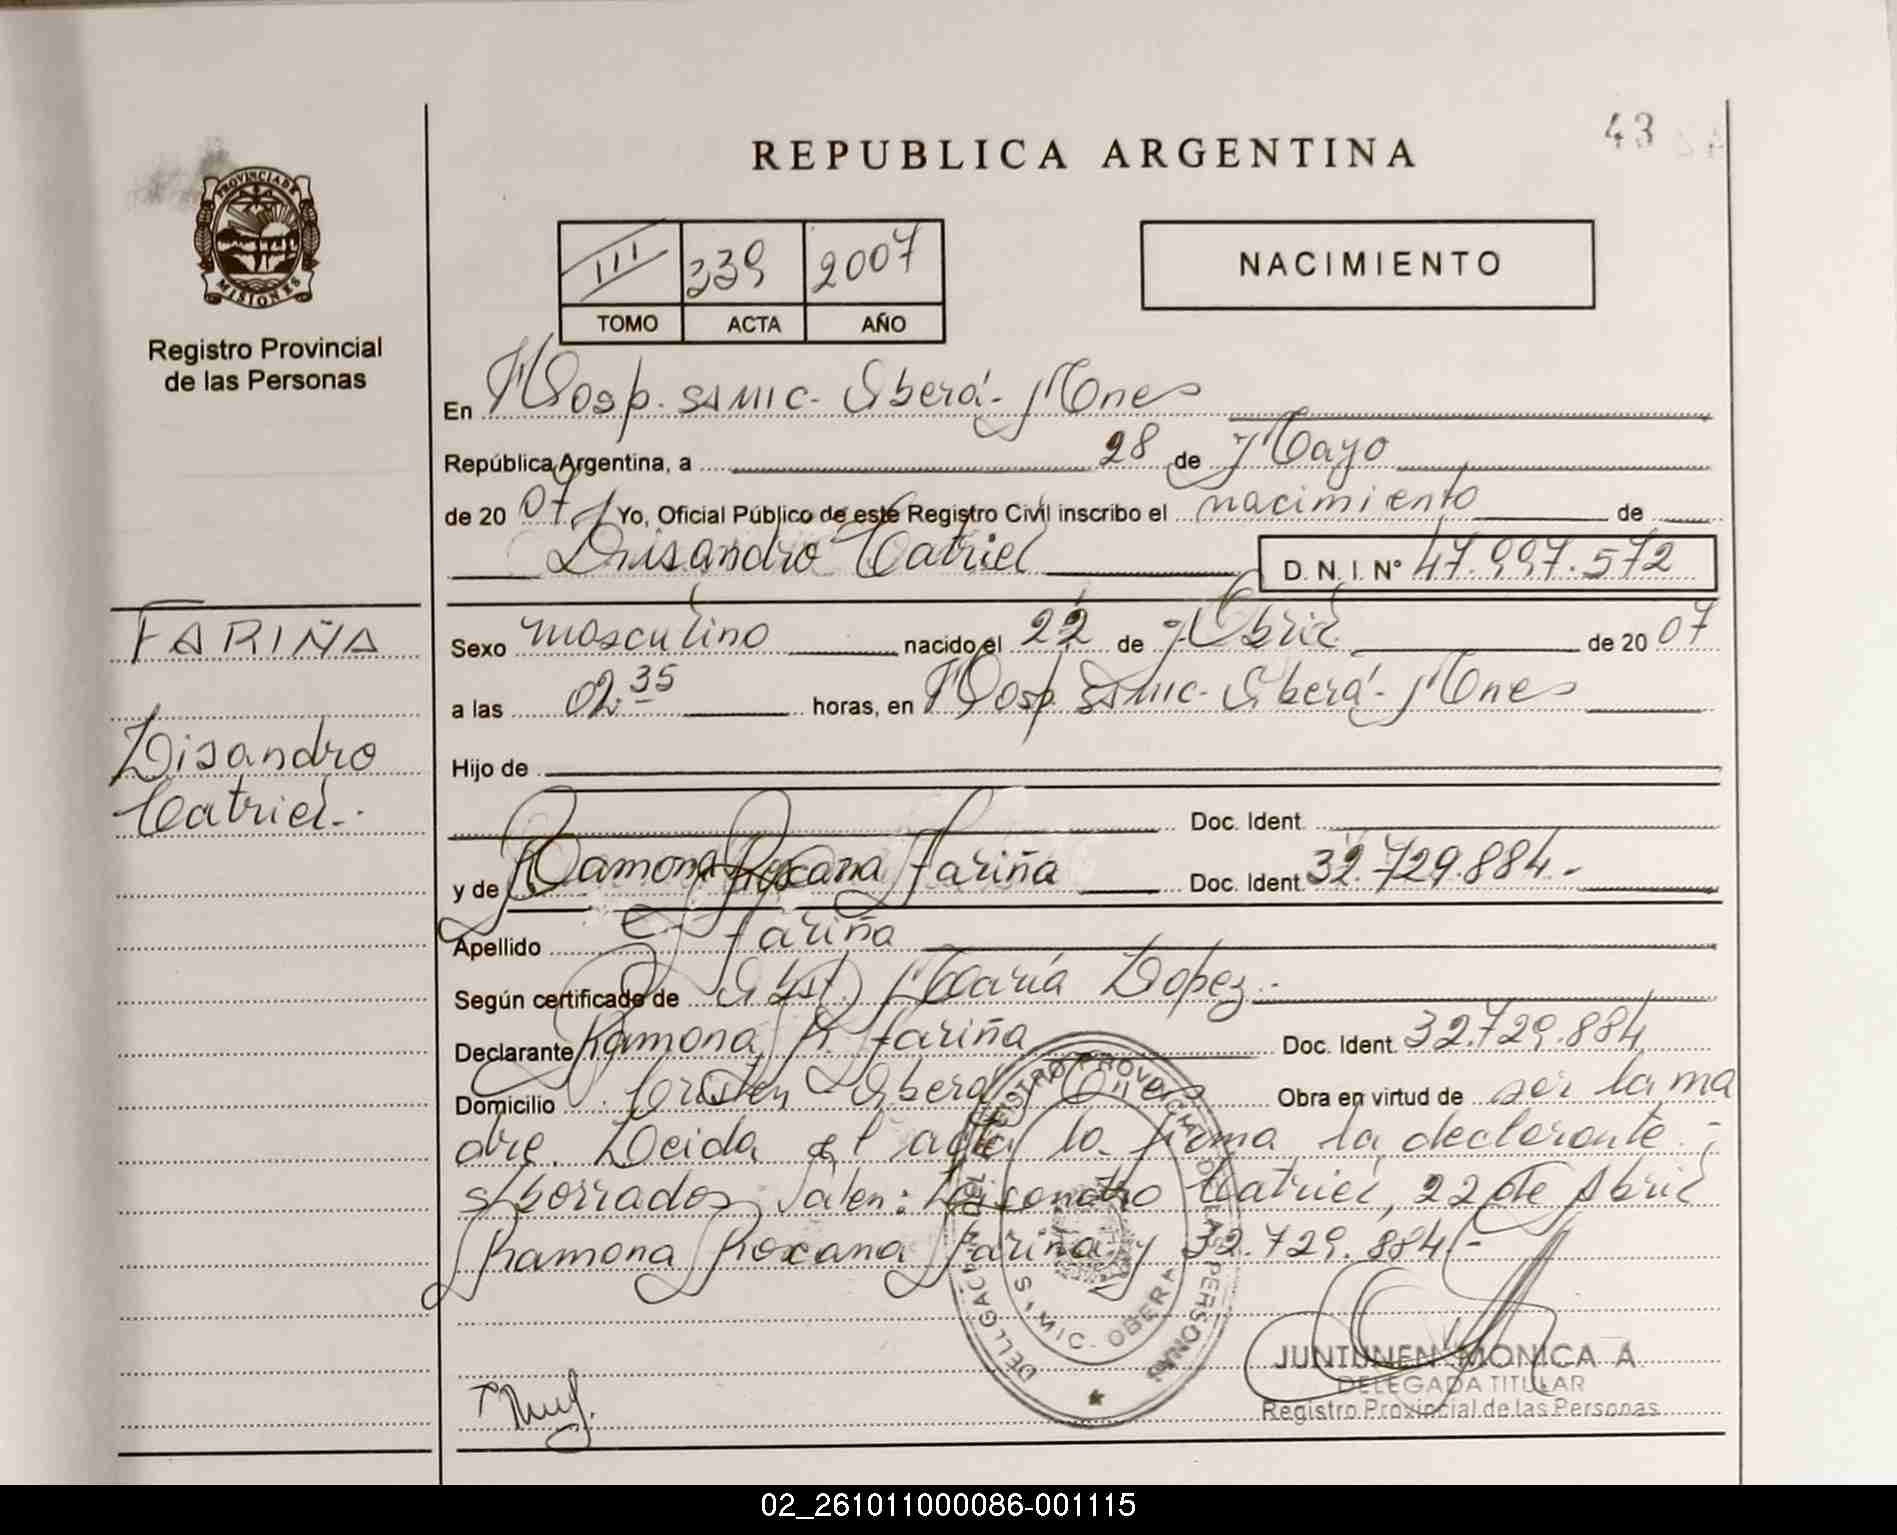 43
REPUBLICA ARGENTINA
PROVINCIA DE
MISIONES
Registro Provincial
de las Personas
III 339 2007
TOMO ACTA AÑO
NACIMIENTO
En Hosp. SAMIC - Oberá - Mnes
República Argentina, a 28 de Mayo
de 20 07 Yo, Oficial Público de este Registro Civil inscribo el nacimiento de
Lisandro Catriel D. N. I. N° 47.997.572
FARIÑA
Lisandro
Catriel.-
Sexo masculino nacido el 22 de Abril de 20 07
a las 02.35 horas, en Hosp. SAMIC - Oberá - Mnes
Hijo de
Doc. Ident.
y de Ramona Roxana Fariña Doc. Ident. 32.729.884.-
Apellido Fariña
Según certificado de Obst. María Lopez.-
Declarante Ramona R. Fariña Doc. Ident. 32.729.884
Domicilio Oberá Mnes Obra en virtud de ser la ma
dre. Leida el acta la firma la declarante.-
s/borrados valen: Lisandro Catriel, 22 de Abril
Ramona Roxana Fariña y 32.729.884.-
REGISTRO PROVINCIAL DE LAS PERSONAS
S MIC. OBERA
JUNTUNEN MONICA A.
DELEGADA TITULAR
Registro Provincial de las Personas
02_261011000086-001115